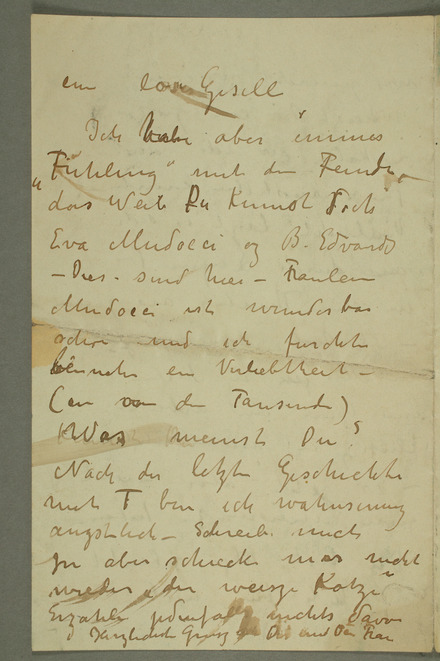 ein loser Gesell
Ich habe aber immer
"Fühling" mit dem Feinde,
das Weib Die Kunst
Eva Mudocci og B. Edwards
– Dies – sind hier – Fraulein
Mudocci ist wunderbar
schön und ich furchte
beinahe ein Verliebtheit –
(ein von den Tausende)
Was meinst Du?
Nach der letzte Geschichte
mit T bin ich wahnsinnig
angstlich – Schreibe mich
aber schreck mir nicht
wieder "der weisze Katze"
Erzähle jedenfalls nichts davon
Herzlichst Gruss an Dir und Den Frau